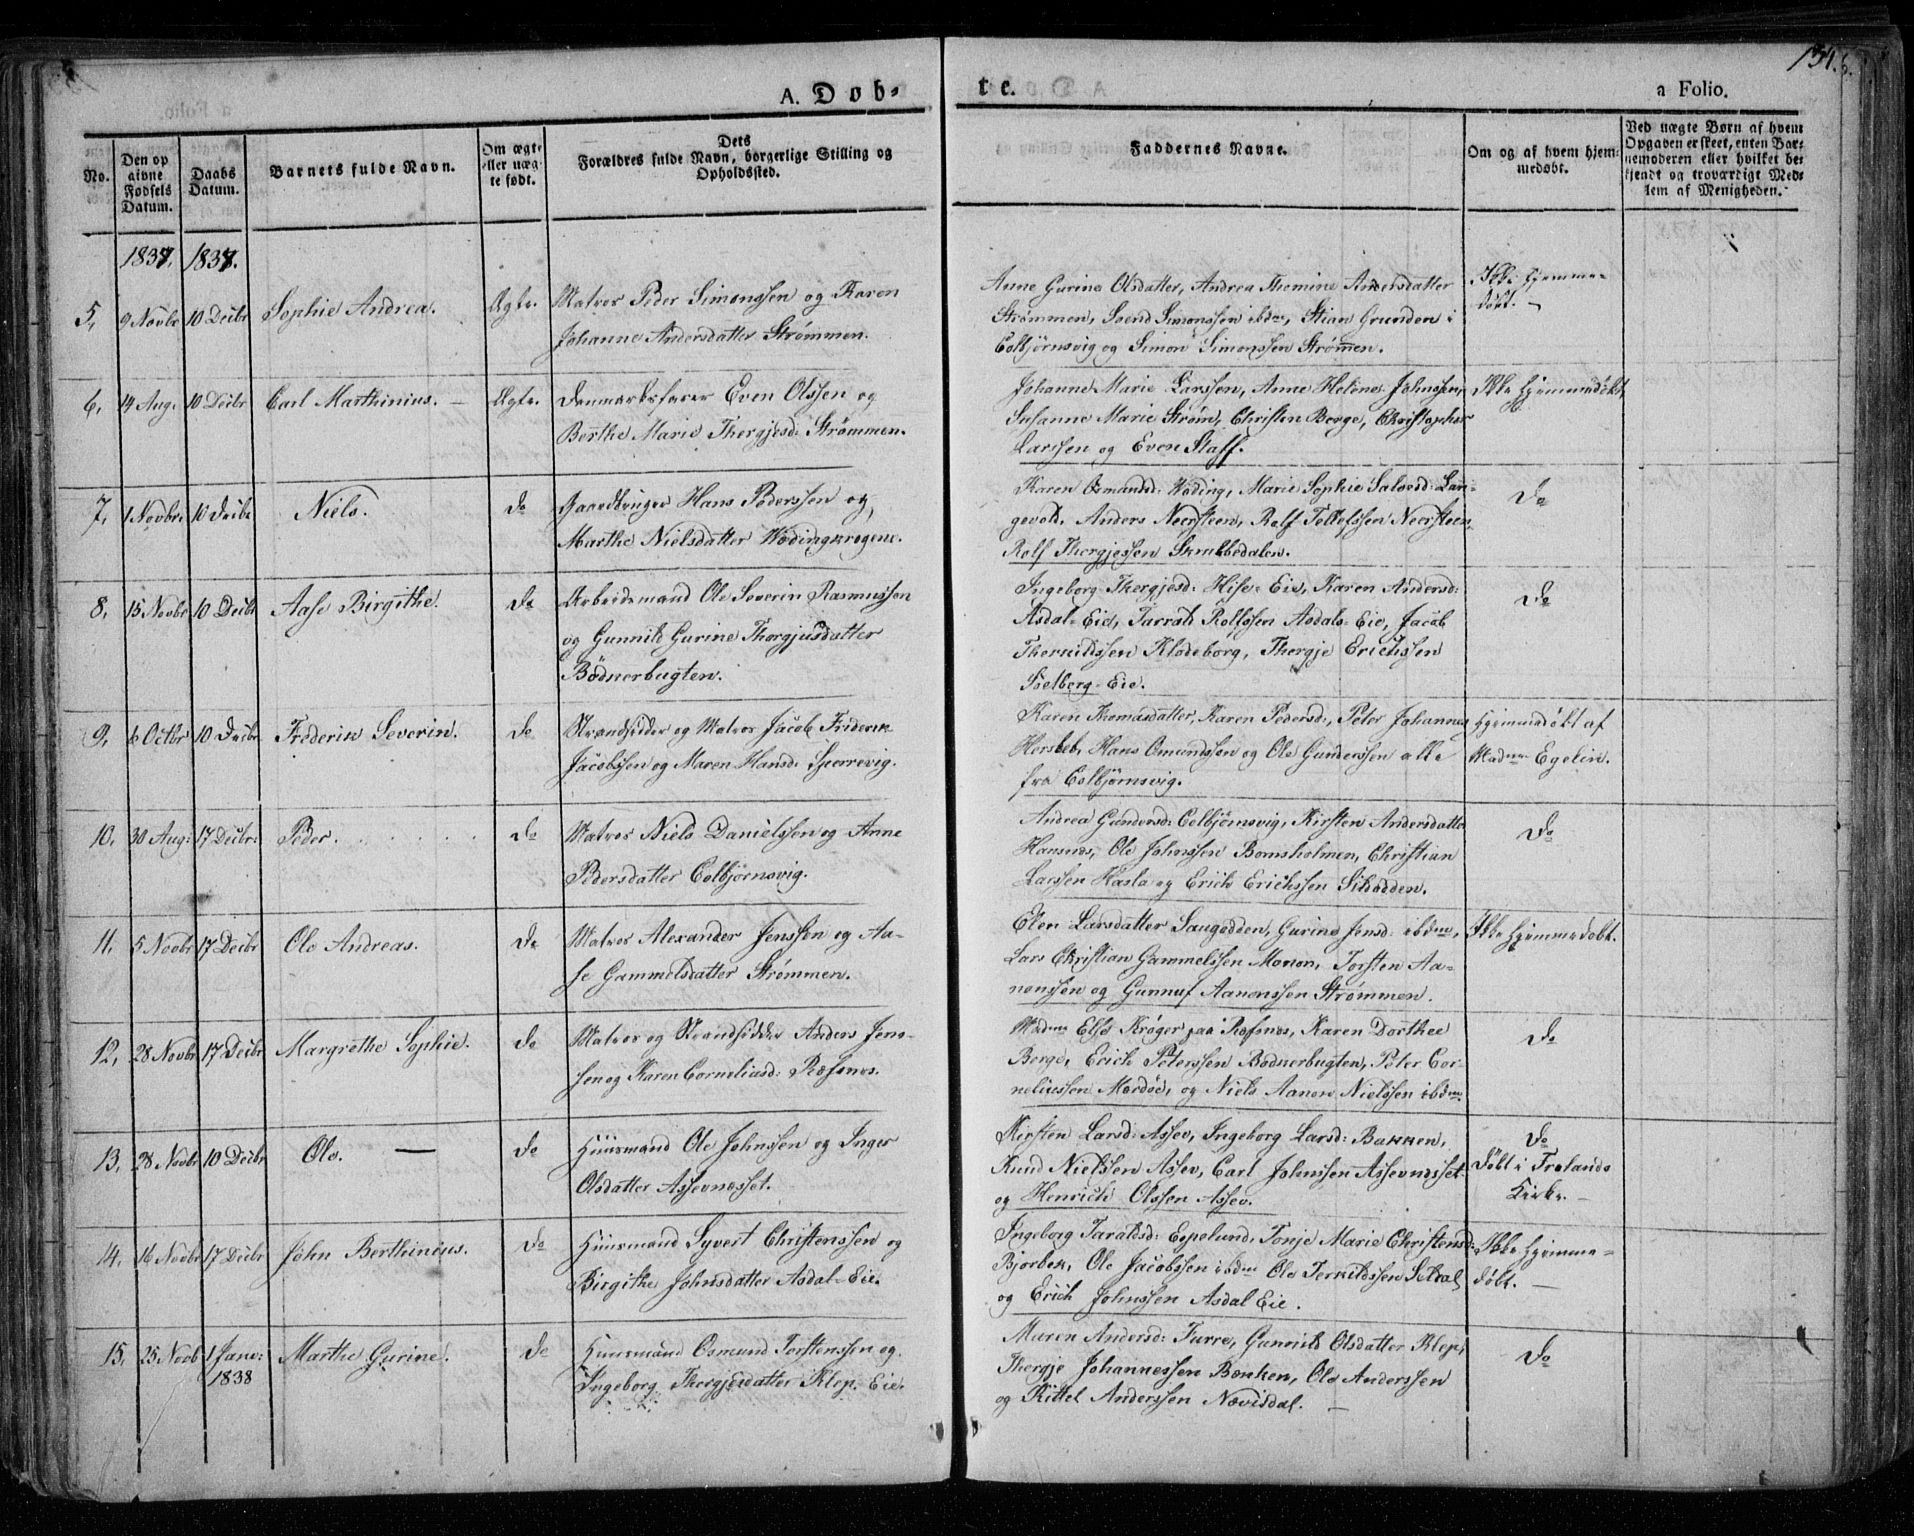 134. 6.
A. Døb-
te.
a Folio.
No.
Den op
givne
Fødsels
Datum.
Daabs
Datum.
Barnets fulde Navn.
Om ægte
eller uæg-
te født.
Dets
Forældres fulde Navn, borgerlige Stilling og
Opholdssted.
Faddernes Navne.
Om og af hvem hjem-
medøbt.
Ved uægte Børn af hvem
Opgaven er skeet, enten Bar-
nemoderen eller hvilket be-
kjendt og troværdigt Med-
lem af Menigheden.
1837. 1837.
5, 9 Novbr 10 Decbr Sophie Andrea. Ægte. Matros Peder Simonssen og Karen
Johanne Andersdatter Strømmen.
Anne Gurine Olsdatter, Andrea Themine Andersdatter
Strømmen, Svend Simonssen ibdm, Stian Grunden i
Colbjørnsvig og Simon Simonssen Strømmen.
Ikke hjemme-
døbt.
6, 14 Aug. 10 Decbr Carl Marthinius. Ægte. Danmarksfarer Even Olssen og
Berthe Marie Thergjesd: Strømmen.
Johanne Marie Larssen, Anne Helene Johnssen,
Susanne Marie Strøm, Christen Berge, Christopher
Larssen og Even Staff.
Ikke hjemmedøbt.
7, 1 Novbr 10 Decbr Niels. do Gaardbruger Hans Pederssen og
Marthe Nielsdatter Hødingkrogene.
Karen Osmundsd: Høding, Marie Sophie Salvesd: Lan-
gevold, Anders Neersteen, Rolf Tellefssen Neersteen
Rolf Thergjessen Skrubbedalen.
do
8, 15 Novbr 10 Decbr Aase Birgithe. do Arbeidsmand Ole Severin Rasmussen
og Gunnild Gurine Thorgjusdatter
Bödnerbugten.
Ingeborg Thergjesd: Hise-Eie, Karen Andersd:
Asdal-Eie, Tarrald Rolfssen Asdals-Eie, Jacob
Therkildssen Klodeborg, Thergje Erichssen
Solberg-Eie.
do
9, 6 Octbr 10 Decbr Frederik Severin. do Strandsidder og Matros Jacob Friderik
Jacobssen og Maren Hansd: Sperrevig.
Karen Thomasdatter, Karen Pedersd:, Peter Johannes
Hersleb, Hans Omundssen og Ole Gunderssen alle
fra Colbjørnsvig.
Hjemmedøbt af
Madme Egelin.
10, 30 Aug: 17 Decbr: Peder. do Matros Niels Danielssen og Anne
Pedersdatter Colbjørnsvig.
Andrea Gundersd: Colbjørnsvig, Kirsten Andersdatter
Hansnæs, Ole Johnssen Bomsholmen, Christian
Larssen Hasla og Erich Erichssen Sildodden.
do
11. 5 Novbr 17 Decbr Ole Andreas. do Matros Alexander Jenssen og Aa-
se Gammelsdatter Strømmen.
Elen Larsdatter Saugodden, Gurine Jensd: ibdm,
Lars Christian Gammelssen Moron, Torsten Aa-
nonssen og Gunnuf Aanonssen Strømmen.
Ikke hjemmedøbt.
12, 28 Novbr 17 Decbr Margrethe Sophie. do Matros og Strandsidder Anders Jens-
sen og Karen Corneliasd: Refsnes.
Madme Else Krøger paa Refsnes, Karen Dorthee
Berge, Erich Peterssen Bødnerbugten, Peter Cor-
neliussen Merdøe, og Niels Aanon Nielssen ibdm.
do
13, 28 Novbr 10 Decbr Ole. do Huusmand Ole Johnssen og Inger
Olsdatter Assevnæsset.
Kirsten Larsd: Assev, Ingeborg Larsd: Bakken,
Knud Nielssen Assev, Carl Johnssen Assevnæsset
og Henrich Olssen Assev.
do
døbt i Frolands
Kirke.
14. 16 Novbr 17 Decbr John Berthinius. do Huusmand Syvert Christenssen og
Birgithe Johnsdatter Asdal-Eie.
Ingeborg Taraldsd: Espelund, Tonje Marie Christensd:
Bjorbek, Ole Jacobssen ibdm Ole Terkildssen Seldal
og Erich Johnssen Asdal Eie.
Ikke hjemme-
døbt.
15, 25 Novb 1 Janr: Marthe Gurine. do Huusmand Osmund Torstenssen og
1838
Ingeborg Thergjesdatter Klep. Eie.
Maren Andersd: Furre, Gunnild Olsdatter Klep,
Thergje Johannessen Benken, Ole Anderssen
og Kittel Anderssen Nævisdal.
do